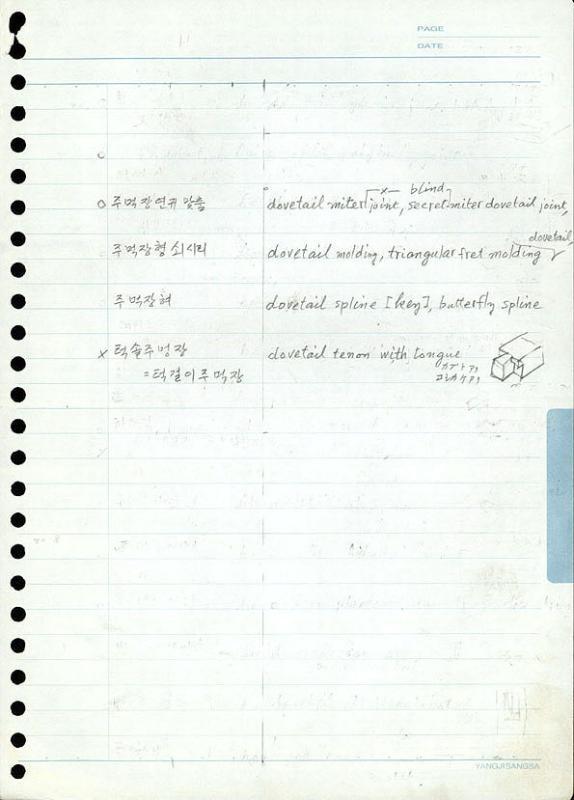 PAGE
DATE
blind
주먹장연귀맞춤 dovetail miter joint, secret miter dovetail joint,
dovetail
주먹장형 쇠시리 dovetail molding, triangular fret molding
주먹장혀 dovetail spline [key], butterfly spline
x 턱솔주먹장 dovetail tenon with tongue
=턱걸이주먹장
YANGJISANGSA